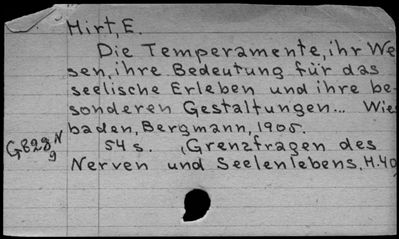 Hirt, E.
Die Temperamente, ihr We
sen, ihre Bedeutung für das
seelische Erleben und ihre be-
sonderen Gestaltungen... Wies
baden, Bergmann, 1905.
54 s. (Grenzfragen des
Nerven und Seelenlebens. H.40